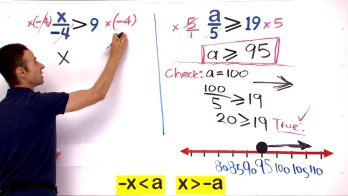 ×(-4) x/-4 > 9 ×(-4)
x
× 5/1 a/5 ≥ 19 × 5
a ≥ 95
Check: a = 100
100/5 ≥ 19
20 ≥ 19 True.
80 85 90 95 100 105 110
-x<a x>-a